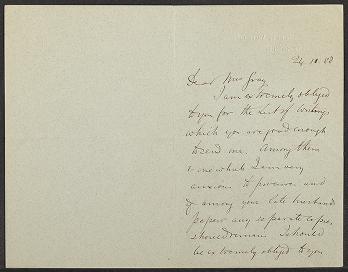 24. 11. 88
Dear Mrs Gray,
I am extremely obliged
to you for the List of Writings
which you are good enough
to send me. Among them
is one which I am very
anxious to possess and
if among your late husband's
papers any separate copies
should remain I should
be extremely obliged to you